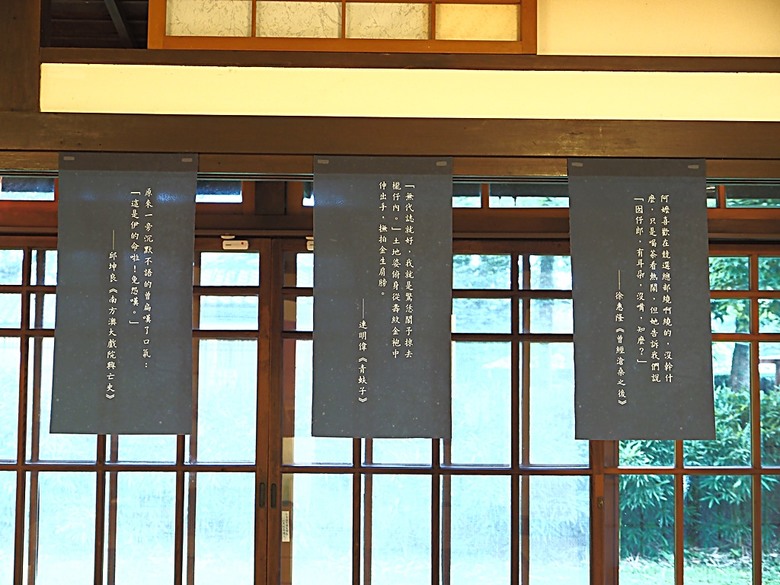 阿嬤喜歡在競選總部繞啊繞的，沒幹什
麼，只是喝茶看熱鬧，但她告訴我們說
「囡仔郎，有耳朵，沒嘴，知麼？」
——徐惠隆《曾經滄桑之後》
「無代誌就好，我就是驚恁閣予掠去
櫳仔內。」土地婆俯身從壽紋金袍中
伸出手，撫拍金生肩膀。
——連明偉《青蚨子》
原來一旁沉默不語的曾扁嘆了口氣：
「這是伊的命啦！免怨嘆。」
——邱坤良《南方澳大戲院興亡史》